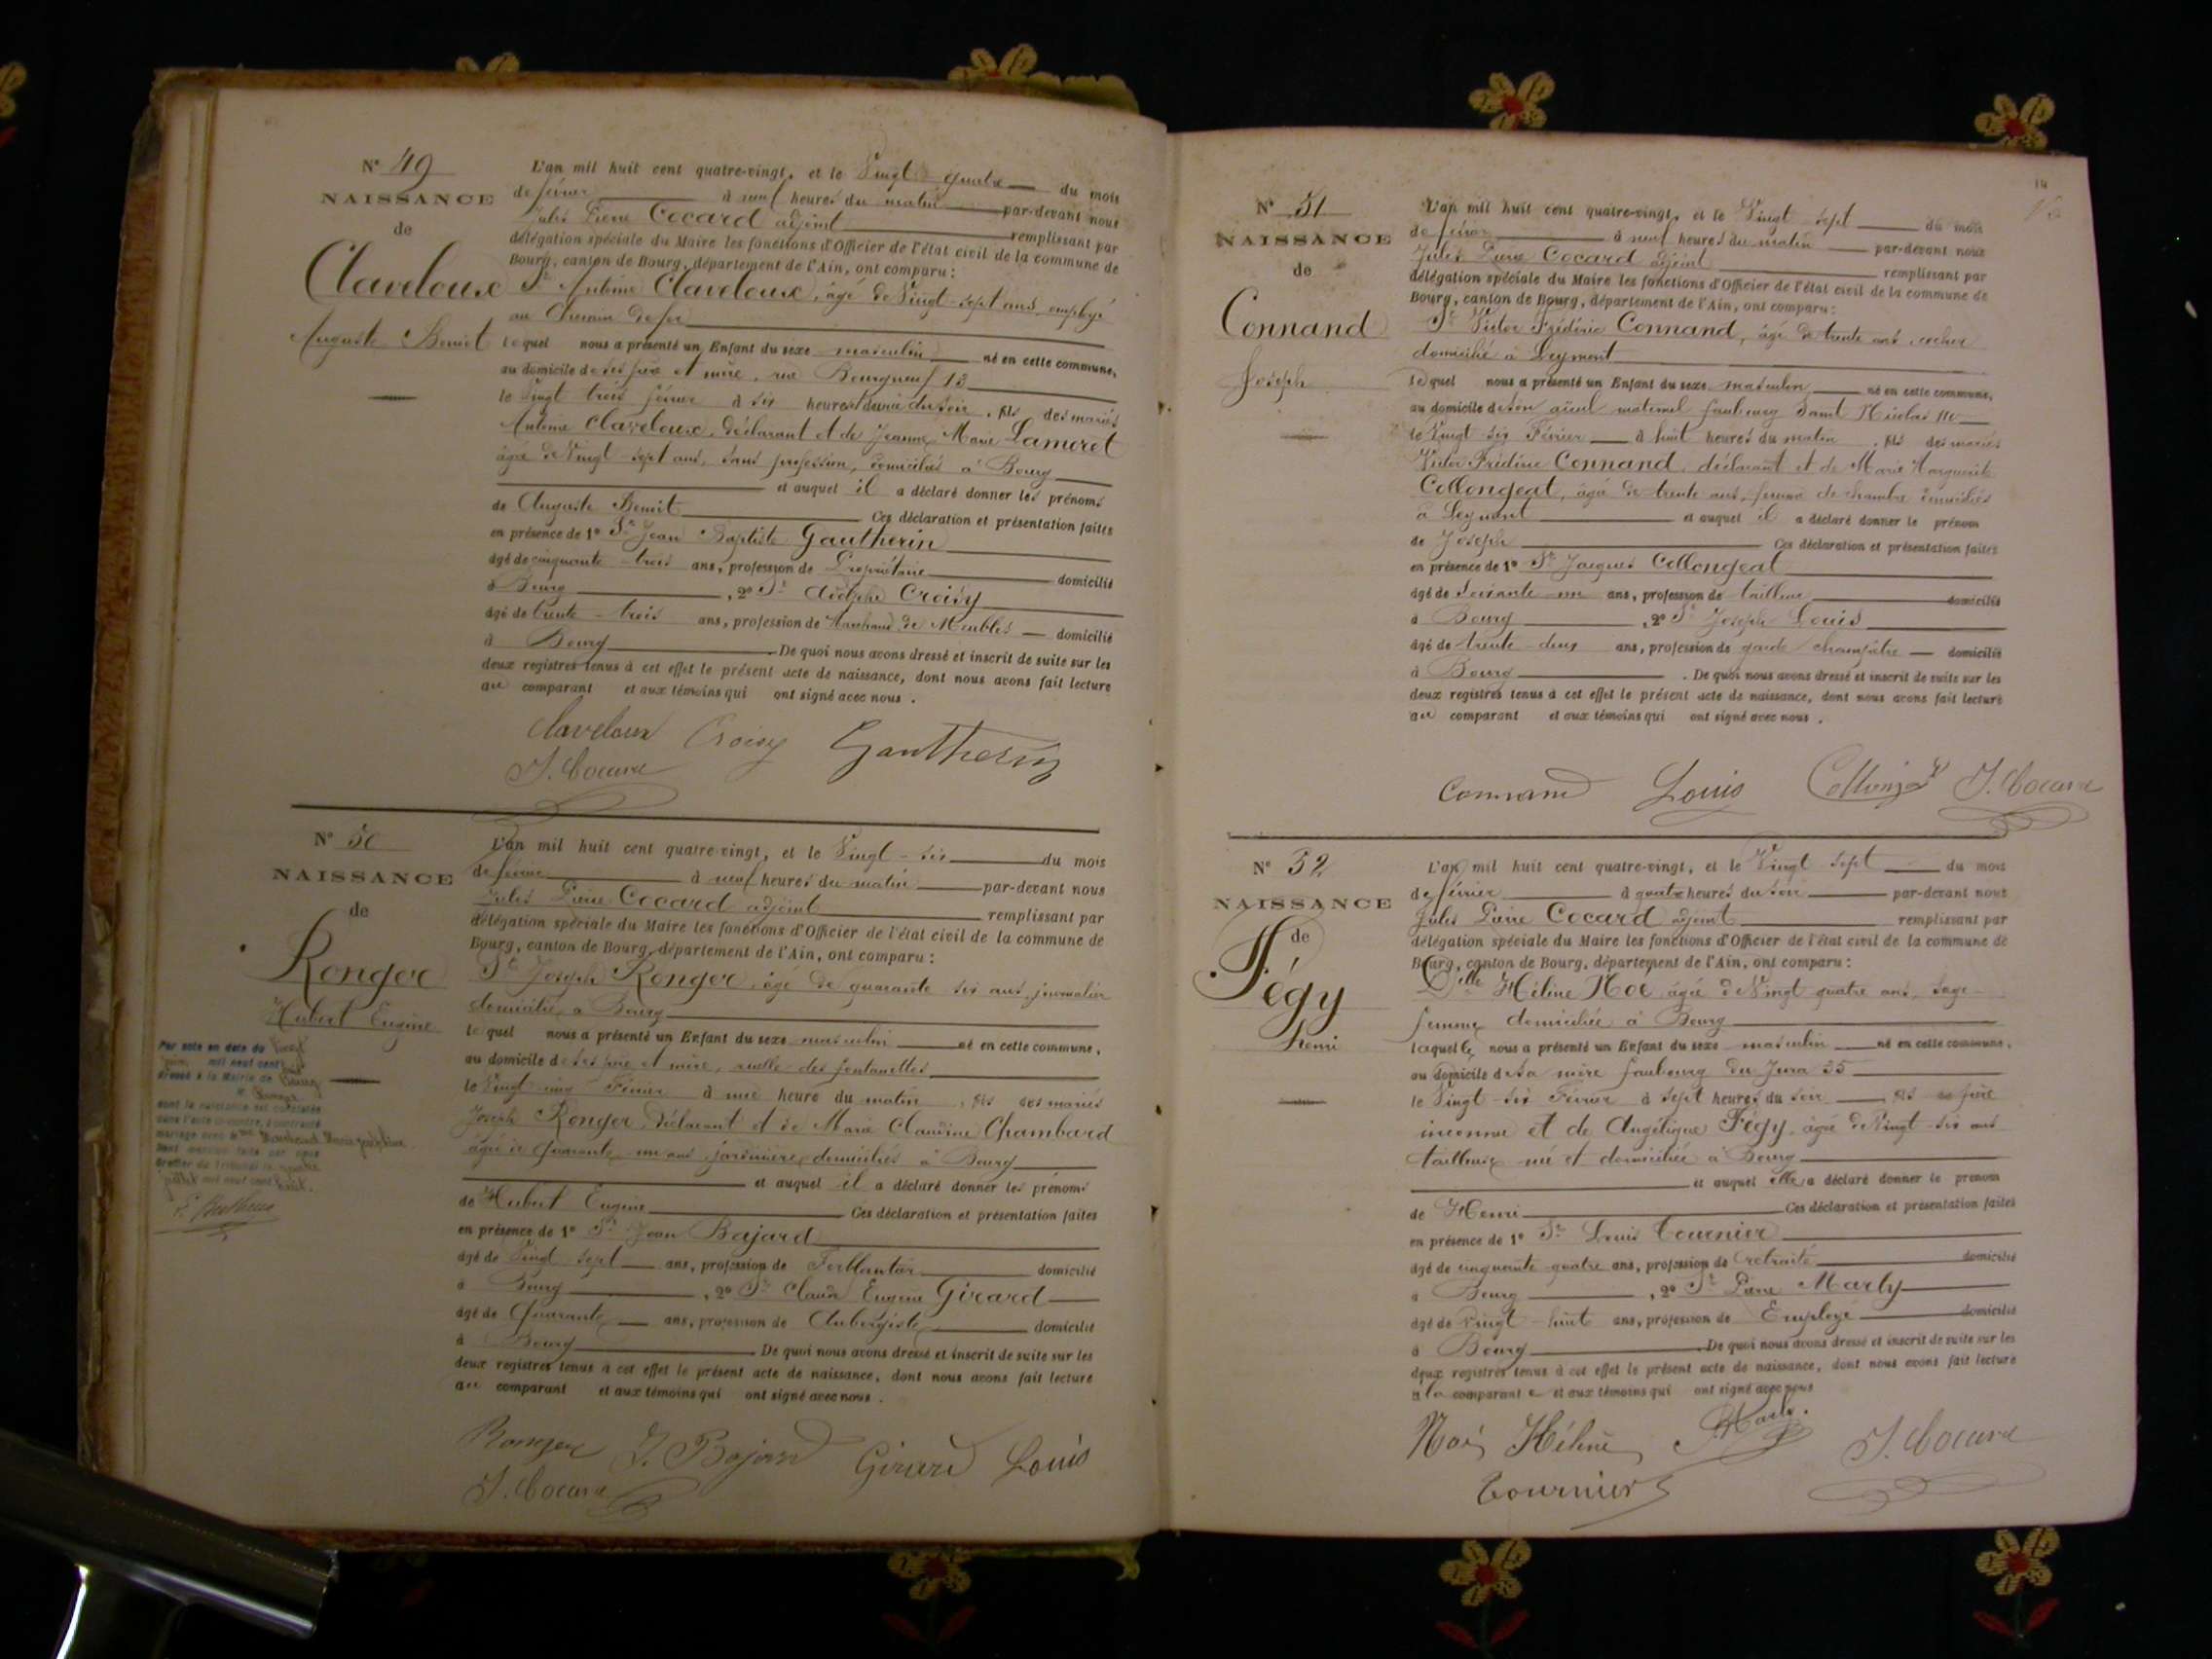 N° 49
NAISSANCE
de
Claveloux
Auguste Benoit
L'an mil huit cent quatre-vingt, et le Vingt quatre du mois
de février à neuf heures du matin par-devant nous
Jules Pierre Cocard adjoint remplissant par
délégation spéciale du Maire les fonctions d'Officier de l'état civil de la commune de
Bourg, canton de Bourg, département de l'Ain, ont comparu :
Sr Antoine Claveloux, âgé de Vingt-sept ans, employé
au Chemin de fer
lequel nous a présenté un Enfant du sexe masculin né en cette commune,
au domicile de ses père et mère, rue Bourgneuf 13
le Vingt trois février à six heures du soir, fils des mariés
Antoine Claveloux, déclarant et de Jeanne Marie Lameret
âgée de Vingt-sept ans, sans profession, domiciliés à Bourg
et auquel il a déclaré donner les prénoms
de Auguste Benoit Ces déclaration et présentation faites
en présence de 1° Sr Jean Baptiste Gautherin
âgé de cinquante-trois ans, profession de Propriétaire domicilié
à Bourg, 2° Sr Adolphe Croisy
âgé de trente-trois ans, profession de Marchand de Meubles domicilié
à Bourg De quoi nous avons dressé et inscrit de suite sur les
deux registres tenus à cet effet le présent acte de naissance, dont nous avons fait lecture
au comparant et aux témoins qui ont signé avec nous.
Claveloux Croisy Gautherin
J. Cocard
N° 50
NAISSANCE
de
Ronger
Hubert Eugène
Par acte en date du vingt
juin mil neuf cent huit
dressé à la Mairie de Bourg
dont la naissance est constatée
dans l'acte ci-contre, a contracté
mariage avec Marchand Marie Joséphine
L'an mil huit cent quatre-vingt, et le Vingt-six du mois
de février à neuf heures du matin par-devant nous
Jules Pierre Cocard adjoint remplissant par
délégation spéciale du Maire les fonctions d'Officier de l'état civil de la commune de
Bourg, canton de Bourg, département de l'Ain, ont comparu :
Sr Joseph Ronger, âgé de quarante six ans, journalier
domicilié à Bourg
lequel nous a présenté un Enfant du sexe masculin né en cette commune,
au domicile de ses père et mère, ruelle des fontanettes
le Vingt cinq Février à une heure du matin, fils des mariés
Joseph Ronger, déclarant et de Marie Claudine Chambard
âgée de quarante un ans, jardinière, domiciliés à Bourg
et auquel il a déclaré donner les prénoms
de Hubert Eugène Ces déclaration et présentation faites
en présence de 1° Sr Jean Bajard
âgé de Vingt sept ans, profession de Ferblantier domicilié
à Bourg, 2° Sr Claude Eugène Girard
âgé de Quarante ans, profession de Aubergiste domicilié
à Bourg De quoi nous avons dressé et inscrit de suite sur les
deux registres tenus à cet effet le présent acte de naissance, dont nous avons fait lecture
au comparant et aux témoins qui ont signé avec nous.
Ronger J. Bajard Girard Louis
J. Cocard
N° 51
NAISSANCE
de
Connand
Joseph
L'an mil huit cent quatre-vingt, et le Vingt sept du mois
de février à neuf heures du matin par-devant nous
Jules Pierre Cocard adjoint remplissant par
délégation spéciale du Maire les fonctions d'Officier de l'état civil de la commune de
Bourg, canton de Bourg, département de l'Ain, ont comparu :
Sr Victor Frédéric Connand, âgé de trente ans, cocher
domicilié à Leyment
lequel nous a présenté un Enfant du sexe masculin né en cette commune,
au domicile de son aïeul maternel faubourg Saint Nicolas
le Vingt-six Février à huit heures du matin, fils des mariés
Victor Frédéric Connand, déclarant et de Marie Marguerite
Collongeat, âgée de trente ans, femme de chambre domiciliés
à Leyment et auquel il a déclaré donner le prénom
de Joseph Ces déclaration et présentation faites
en présence de 1° Sr Jacques Collongeat
âgé de soixante un ans, profession de tailleur domicilié
à Bourg, 2° Sr Joseph Louis
âgé de trente-deux ans, profession de garde champêtre domicilié
à Bourg. De quoi nous avons dressé et inscrit de suite sur les
deux registres tenus à cet effet le présent acte de naissance, dont nous avons fait lecture
au comparant et aux témoins qui ont signé avec nous.
Connand Louis Collongeat J. Cocard
N° 52
NAISSANCE
de
Fégy
Henri
L'an mil huit cent quatre-vingt, et le Vingt sept du mois
de février à quatre heures du soir par-devant nous
Jules Pierre Cocard adjoint remplissant par
délégation spéciale du Maire les fonctions d'Officier de l'état civil de la commune de
Bourg, canton de Bourg, département de l'Ain, ont comparu :
Delle Hélène Noé, âgée de Vingt quatre ans, sage-
femme domiciliée à Bourg
laquelle nous a présenté un Enfant du sexe masculin né en cette commune,
au domicile de sa mère faubourg du Jura 35
le Vingt-six Février à sept heures du soir fils de père
inconnu et de Angélique Fégy, âgée de Vingt-six ans
tailleuse née et domiciliée à Bourg
et auquel elle a déclaré donner le prénom
de Henri Ces déclaration et présentation faites
en présence de 1° Sr Louis Tournier
âgé de cinquante quatre ans, profession de retraité domicilié
à Bourg, 2° Sr Pierre Marly
âgé de vingt-huit ans, profession de Employé domicilié
à Bourg De quoi nous avons dressé et inscrit de suite sur les
deux registres tenus à cet effet le présent acte de naissance, dont nous avons fait lecture
à la comparante et aux témoins qui ont signé avec nous
Noé Hélène Marly J. Cocard
Tournier